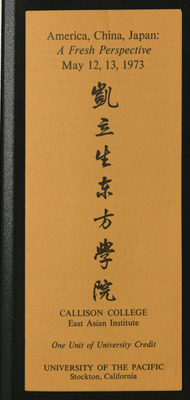 America, China, Japan:
A Fresh Perspective
May 12, 13, 1973
凱
立
生
东
方
学
院
CALLISON COLLEGE
East Asian Institute
One Unit of University Credit
UNIVERSITY OF THE PACIFIC
Stockton, California